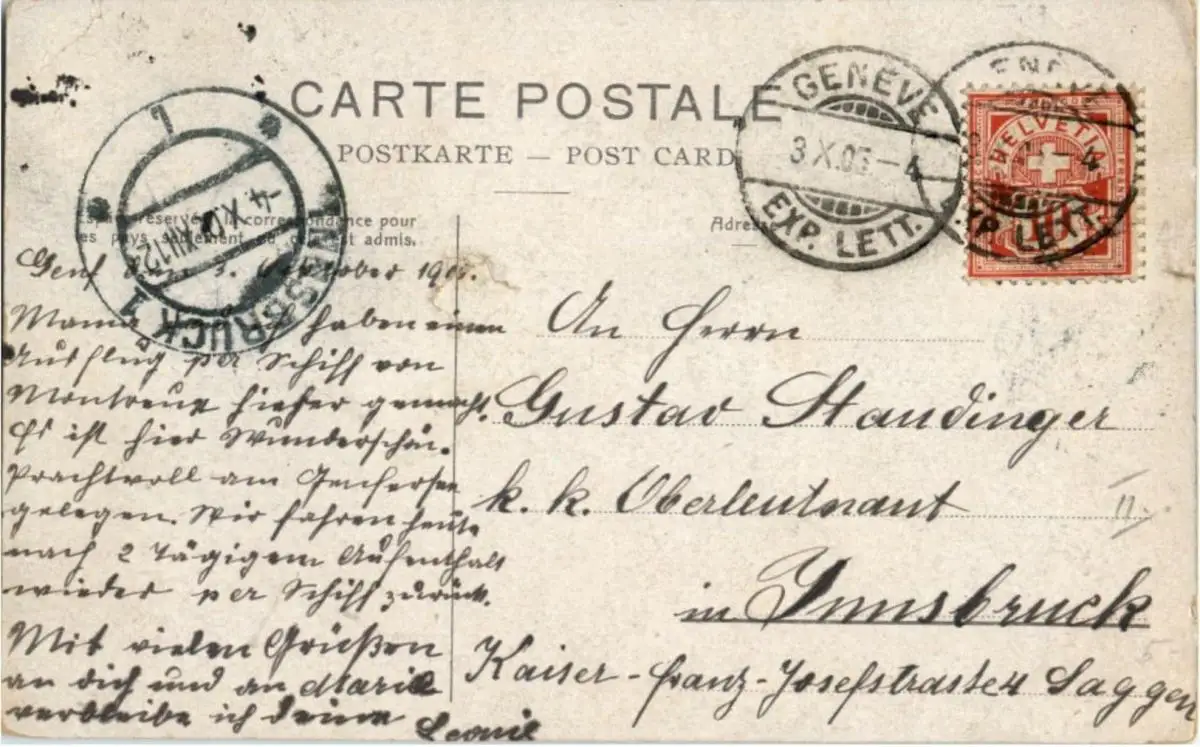 CARTE POSTALE
POSTKARTE — POST CARD
Espace réservé à la correspondance pour
les pays seulement où c'est admis.
Adresse
GENÈVE
3.X.05 – 4
EXP. LETT.
EXP. LETT.
HELVETIA
10
INNSBRUCK 1
-4.X.0
Genf den 3. October 190
Mama haben einen
Ausflug per Schiff von
Montreux hieher gemacht.
Es ist hier Wunderschön.
Prachtvoll am Genfersee
gelegen. Wir fahren heute
nach 2 Tägigem Aufenthalt
wieder per Schiff zurück.
Mit vielen Grüßen
an dich und an Marie
verbleibe ich deine
Leonie
An Herrn
Gustav Staudinger
k. k. Oberleutnant
in Innsbruck
Kaiser-Franz-Josefstrasse 4 Saggen